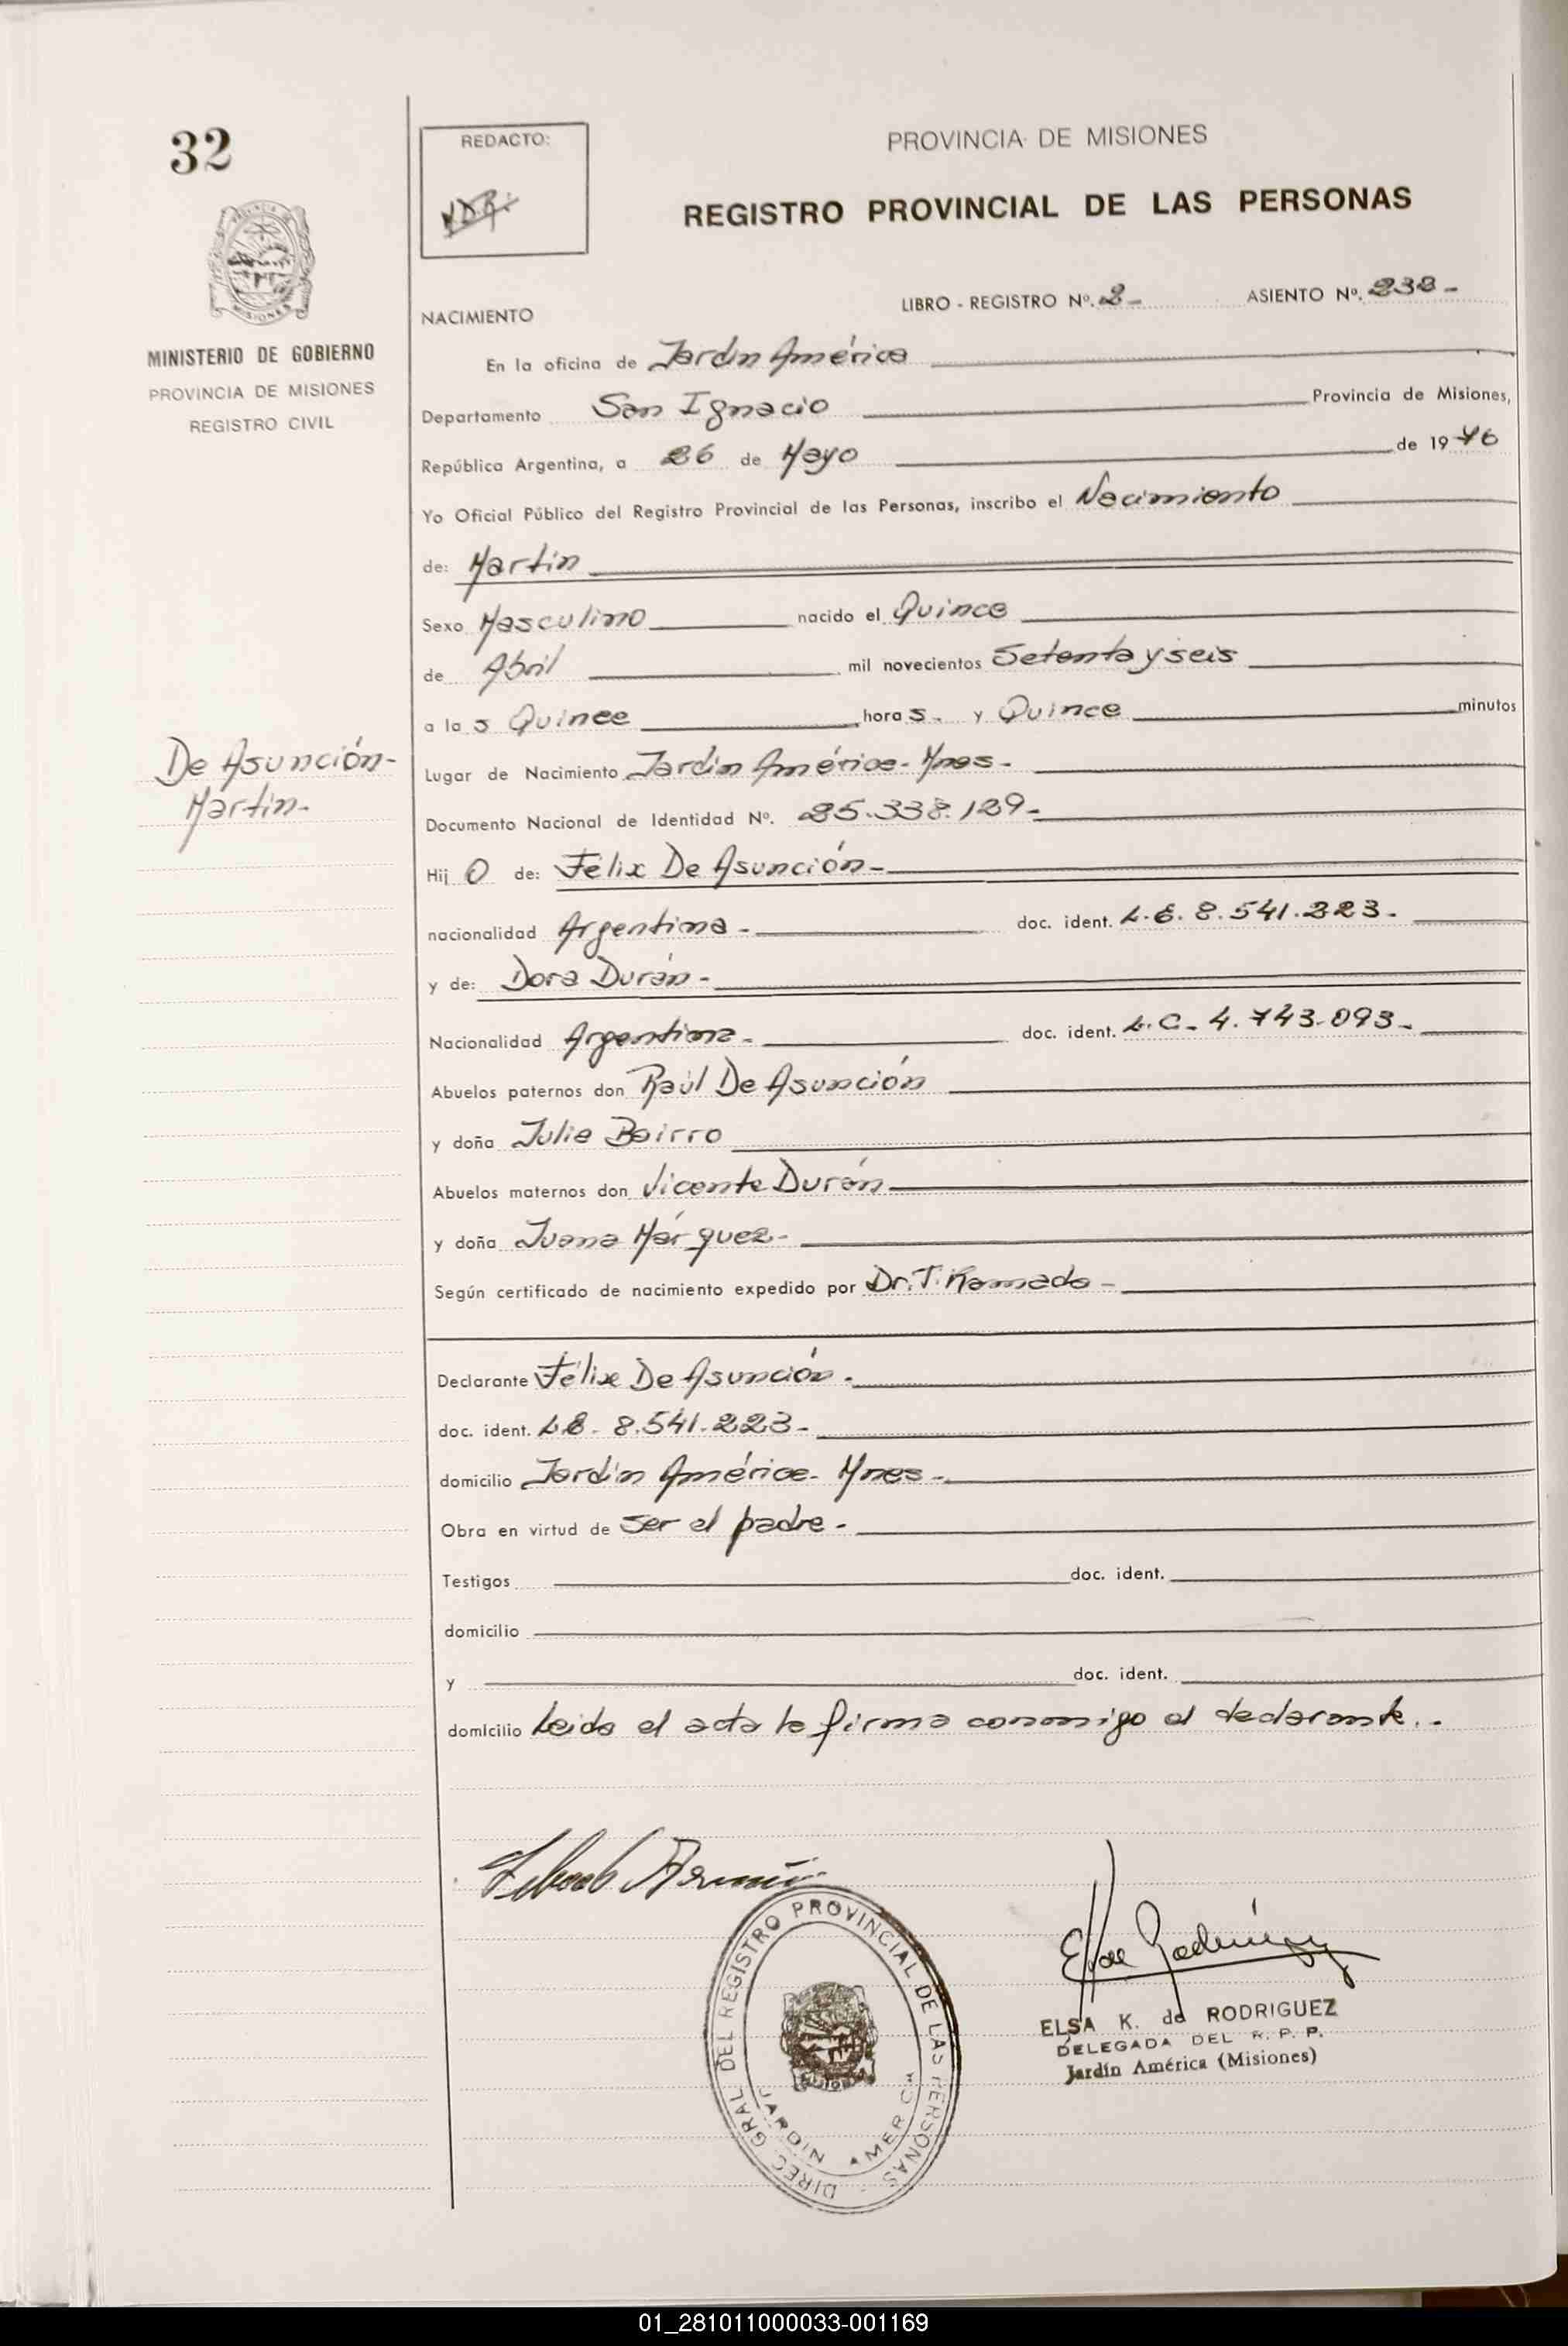 32
REDACTO:
PROVINCIA DE MISIONES
REGISTRO PROVINCIAL DE LAS PERSONAS
MINISTERIO DE GOBIERNO
PROVINCIA DE MISIONES
REGISTRO CIVIL
LIBRO - REGISTRO Nº. 2 - ASIENTO Nº. 232 -
NACIMIENTO
En la oficina de Jardin América
Departamento San Ignacio Provincia de Misiones,
República Argentina, a 26 de Mayo de 1976
Yo Oficial Público del Registro Provincial de las Personas, inscribo el Nacimiento
de: Martin
Sexo Masculino nacido el Quince
de Abril mil novecientos Setenta y seis
a las Quince horas. y Quince minutos
De Asunción-
Martin-
Lugar de Nacimiento Jardin América- Mnes-
Documento Nacional de Identidad Nº. 25.338.129-
Hijo de: Félix De Asunción-
nacionalidad Argentina - doc. ident. L.E. 8.541.223-
y de: Dora Durán-
Nacionalidad Argentina- doc. ident. L.C- 4.743-093-
Abuelos paternos don Raúl De Asunción
y doña Julia Bairro
Abuelos maternos don Vicente Durán
y doña Juana Márquez-
Según certificado de nacimiento expedido por Dr. T. Ramada -
Declarante Félix De Asunción.
doc. ident. LE- 8.541-223-
domicilio Jardin América- Mnes-
Obra en virtud de ser el padre-
Testigos doc. ident.
domicilio
y doc. ident.
domicilio Leida el acta la firma conmigo el declarante.-
DIREC GRAL DEL REGISTRO PROVINCIAL DE LAS PERSONAS
JARDIN AMERICA
ELSA K. de RODRIGUEZ
DELEGADA DEL R. P. P.
Jardín América (Misiones)
01_281011000033-001169